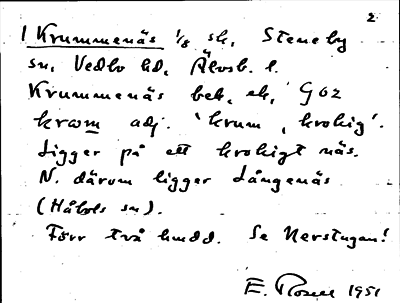 2.
1 Krummenäs 1/8 sk, Steneby
sn, Vedbo hd, Älvsb. l.
Krummenäs bet. ek, G02
krum adj. 'krum, krokig'.
Ligger på ett krokigt näs.
N. därom ligger Långenäs
(Håbols sn).
Förr två hmdd. Se Nerstugan!
E. Rosell 1951